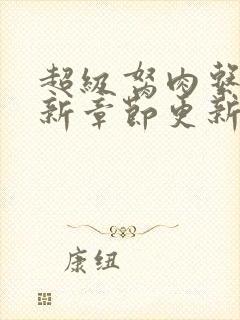 超级驽肉系
新章节更新
康纽